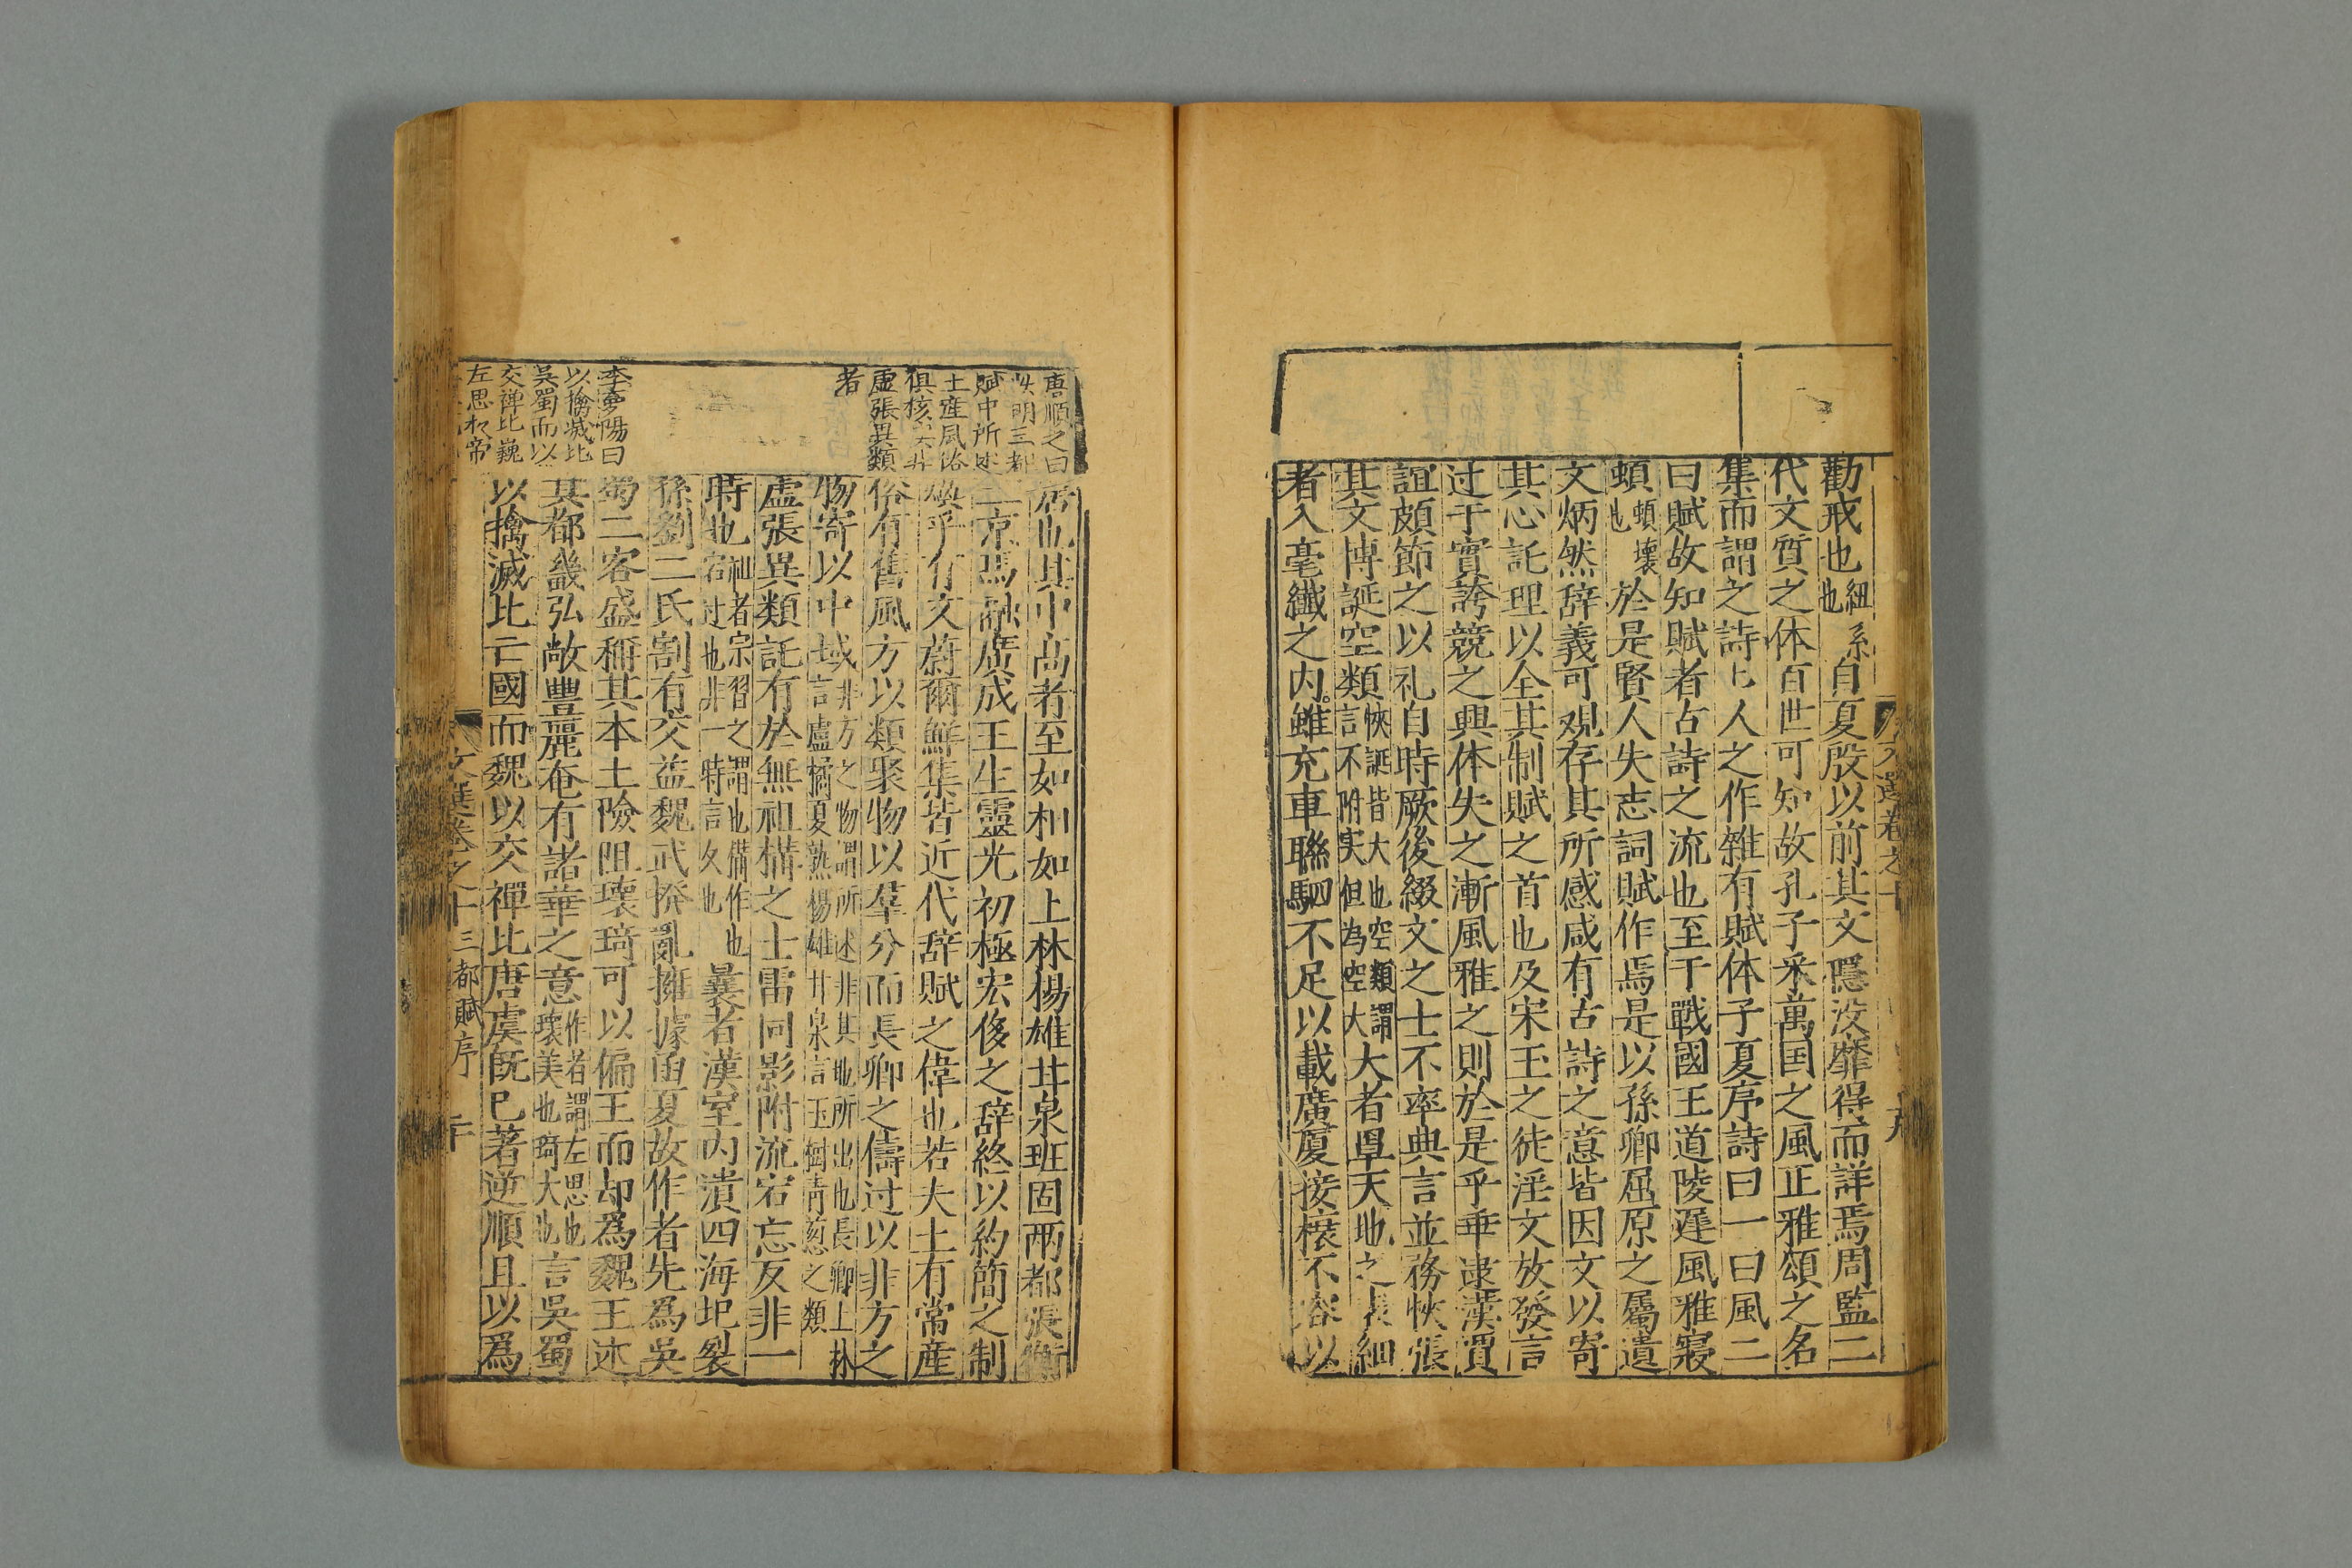 勸戒也紐也系自夏殷以前其文隱没靡得而詳焉周監二
代文質之体百世可知故孔子釆萬国之風正雅頌之名
集而謂之詩上人之作雜有賦体子夏序詩曰一曰風二
曰賦故知賦者古詩之流也至于戰國王道陵遲風雅寢
頓頓壞也於是賢人失志詞賦作焉是以孫卿屈原之屬遺
文炳然辞義可观存其所感咸有古詩之意皆因文以寄
其心託理以全其制賦之首也及宋玉之徒淫文放發言
过于實誇競之興体失之漸風雅之則於是乎乖逮漢賈
誼頗節之以礼自時厥後綴文之士不率典言並務恢張
其文博誕空類恢誕皆大也空類謂言不附实但為空大大者罩天地之表細
者入毫纖之内雖充車聯駟不足以載廣廈接榱不容以
居也其中高者至如相如上林楊雄甘泉班固兩都張衡
二京馬融廣成王生靈光初極宏侈之辞終以約簡之制
煥乎有文蔚爾鮮集皆近代辞賦之偉也若夫土有常産
俗有舊風方以類聚物以羣分而長卿之儔过以非方之
物寄以中域非方之物謂所述非其地所出也長卿上林言盧橘夏熟楊雄甘泉言玉樹青葱之類
虛張異類託有於無祖搆之士雷同影附流宕忘反非一
時也祖者宗習之謂也搆作也宕过也非一時言久也曩者漢室内潰四海圯裂
孫劉二氏割有交益魏武撥亂擁據函夏故作者先爲吳
蜀二客盛稱其本土險阻瓌琦可以偏王而却爲魏王述
其都畿弘敞豐麗奄有諸華之意作者謂左思也瓌美也琦大也言吳蜀
以擒滅比亡國而魏以交禪比唐虞既已著逆順且以爲
唐順之曰
明三都
賦中所述
土産風俗
俱核实非
虛張異類
者
李夢陽曰
以擒滅比
吳蜀而以
交禅比巍
左思於帝
文選卷之十
三都賦序
二十